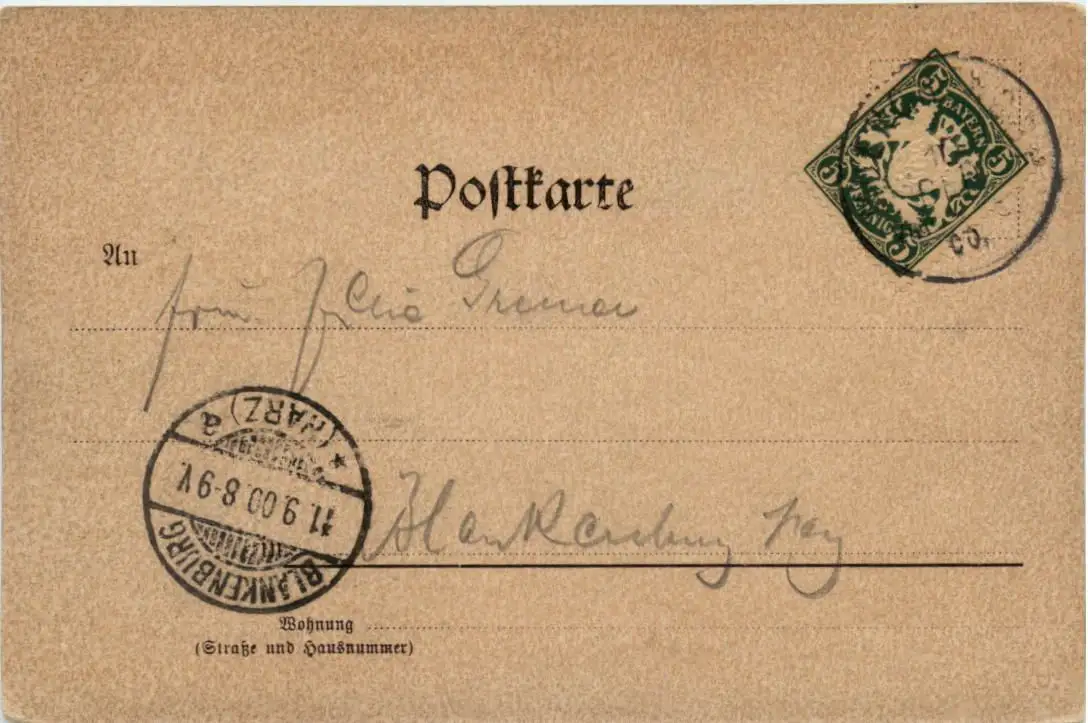 Postkarte
An
5 BAYERN 5
5 PFENNIG 5
Frau
Blankenburg Harz
BLANKENBURG
* (HARZ) a
11.9.00.8-9V.
Wohnung
(Straße und Hausnummer)